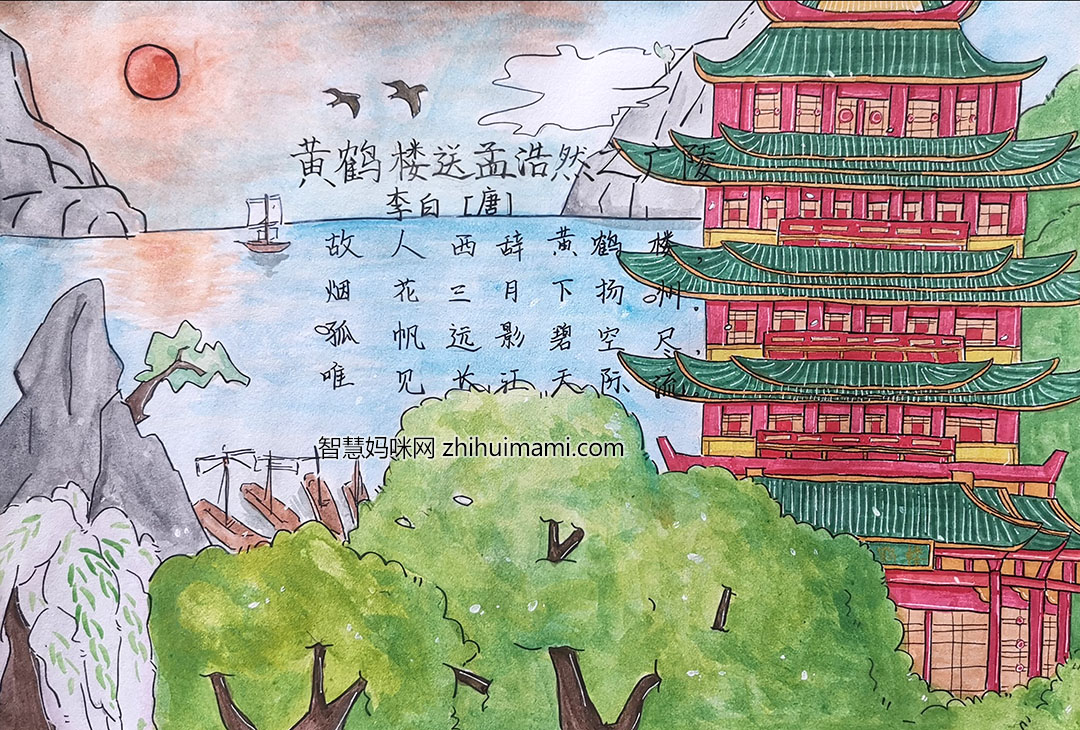 黄鹤楼送孟浩然之广陵
李白 [唐]
故人西辞黄鹤楼，
烟花三月下扬州。
孤帆远影碧空尽，
唯见长江天际流
智慧妈咪网 zhihuimami.com